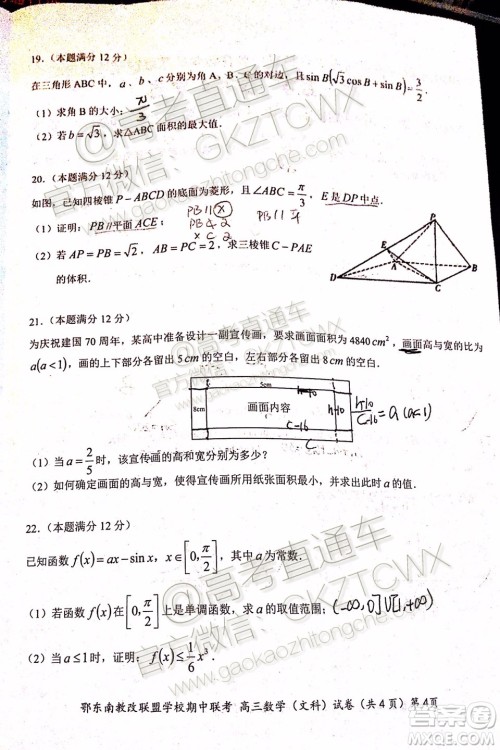 19.（本题满分 12 分）
在三角形 ABC 中，a、b、c 分别为角 A、B、C 的对边，且 sin B(√3 cos B + sin B) = 3/2
（1）求角 B 的大小； π/3
（2）若 b = √3，求△ABC 面积的最大值.
20.（本题满分 12 分）
如图，已知四棱锥 P－ABCD 的底面为菱形，且∠ABC = π/3，E 是 DP 中点.
PB∥X PB∥平
（1）证明：PB∥平面 ACE； PB⊄2
x⊂2
（2）若 AP = PB = √2，AB = PC = 2，求三棱锥 C－PAE
的体积.
P
E
A
B
D
C
21.（本题满分 12 分）
为庆祝建国 70 周年，某高中准备设计一副宣传画，要求画面面积为 4840cm²，画面高与宽的比为
a(a<1)，画的上下部分各留出 5cm 的空白，左右部分各留出 8cm 的空白.
5cm
8cm 画面内容 h-10
c-16
c
h-10/c-16 = a (a<1)
（1）当 a = 2/5 时，该宣传画的高和宽分别为多少？
（2）如何确定画面的高与宽，使得宣传画所用纸张面积最小，并求出此时 a 的值.
22.（本题满分 12 分）
已知函数 f(x) = ax − sin x，x∈[0, π/2]，其中 a 为常数.
（1）若函数 f(x) 在 [0, π/2] 上是单调函数，求 a 的取值范围； (-∞,0]∪[1,+∞)
（2）当 a≤1 时，证明：f(x) ≤ 1/6 x³.
鄂东南教改联盟学校期中联考 高三数学（文科）试卷（共 4 页）第 4 页
@高考直通车
官方微信：GKZTCWX
www.gaokaozhitongche.com
@高考直通车
官方微信：GKZTCWX
www.gaokaozhitongche.com
答案圈
MXQE.COM